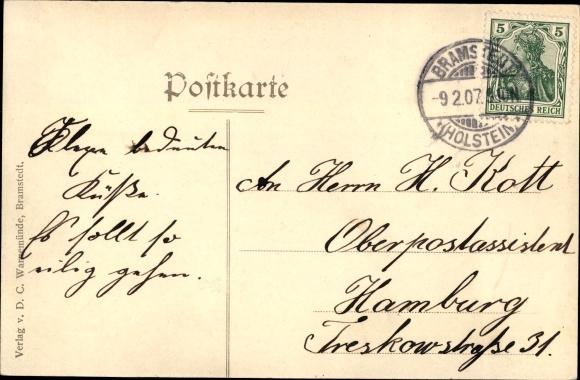 Postkarte
BRAMSTEDT
-9.2.07.
(HOLSTEIN)
5 5
DEUTSCHES REICH
Klexe bedeuten
Küsse.
Es sollt so
eilig gehen.
An Herrn H. Kott
Oberpostassistent
Hamburg
Treskowstraße 31.
Verlag v. D. C. Warnemünde, Bramstedt.